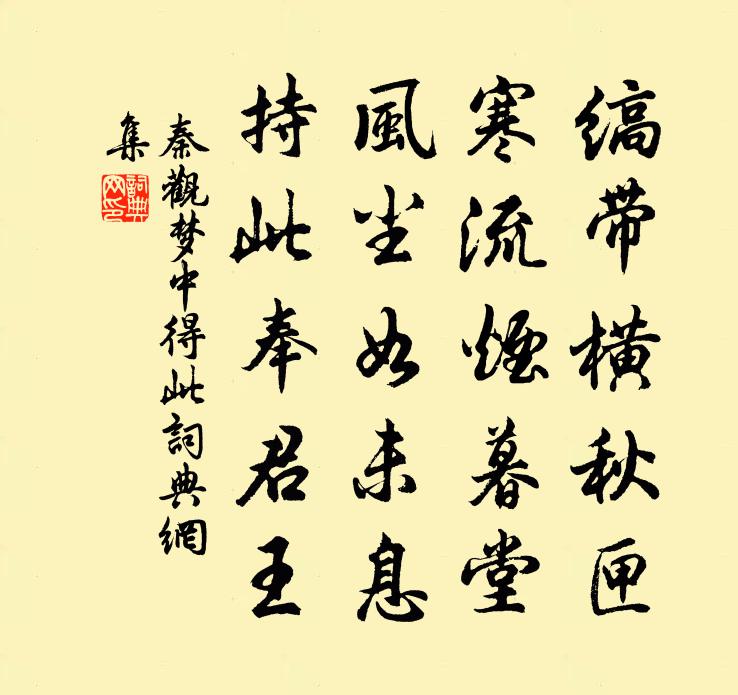 縞带橫秋匣
寒流煙暮堂
風尘如未息
持此奉君王
秦觀梦中得此詞典網
集
詞典
网印